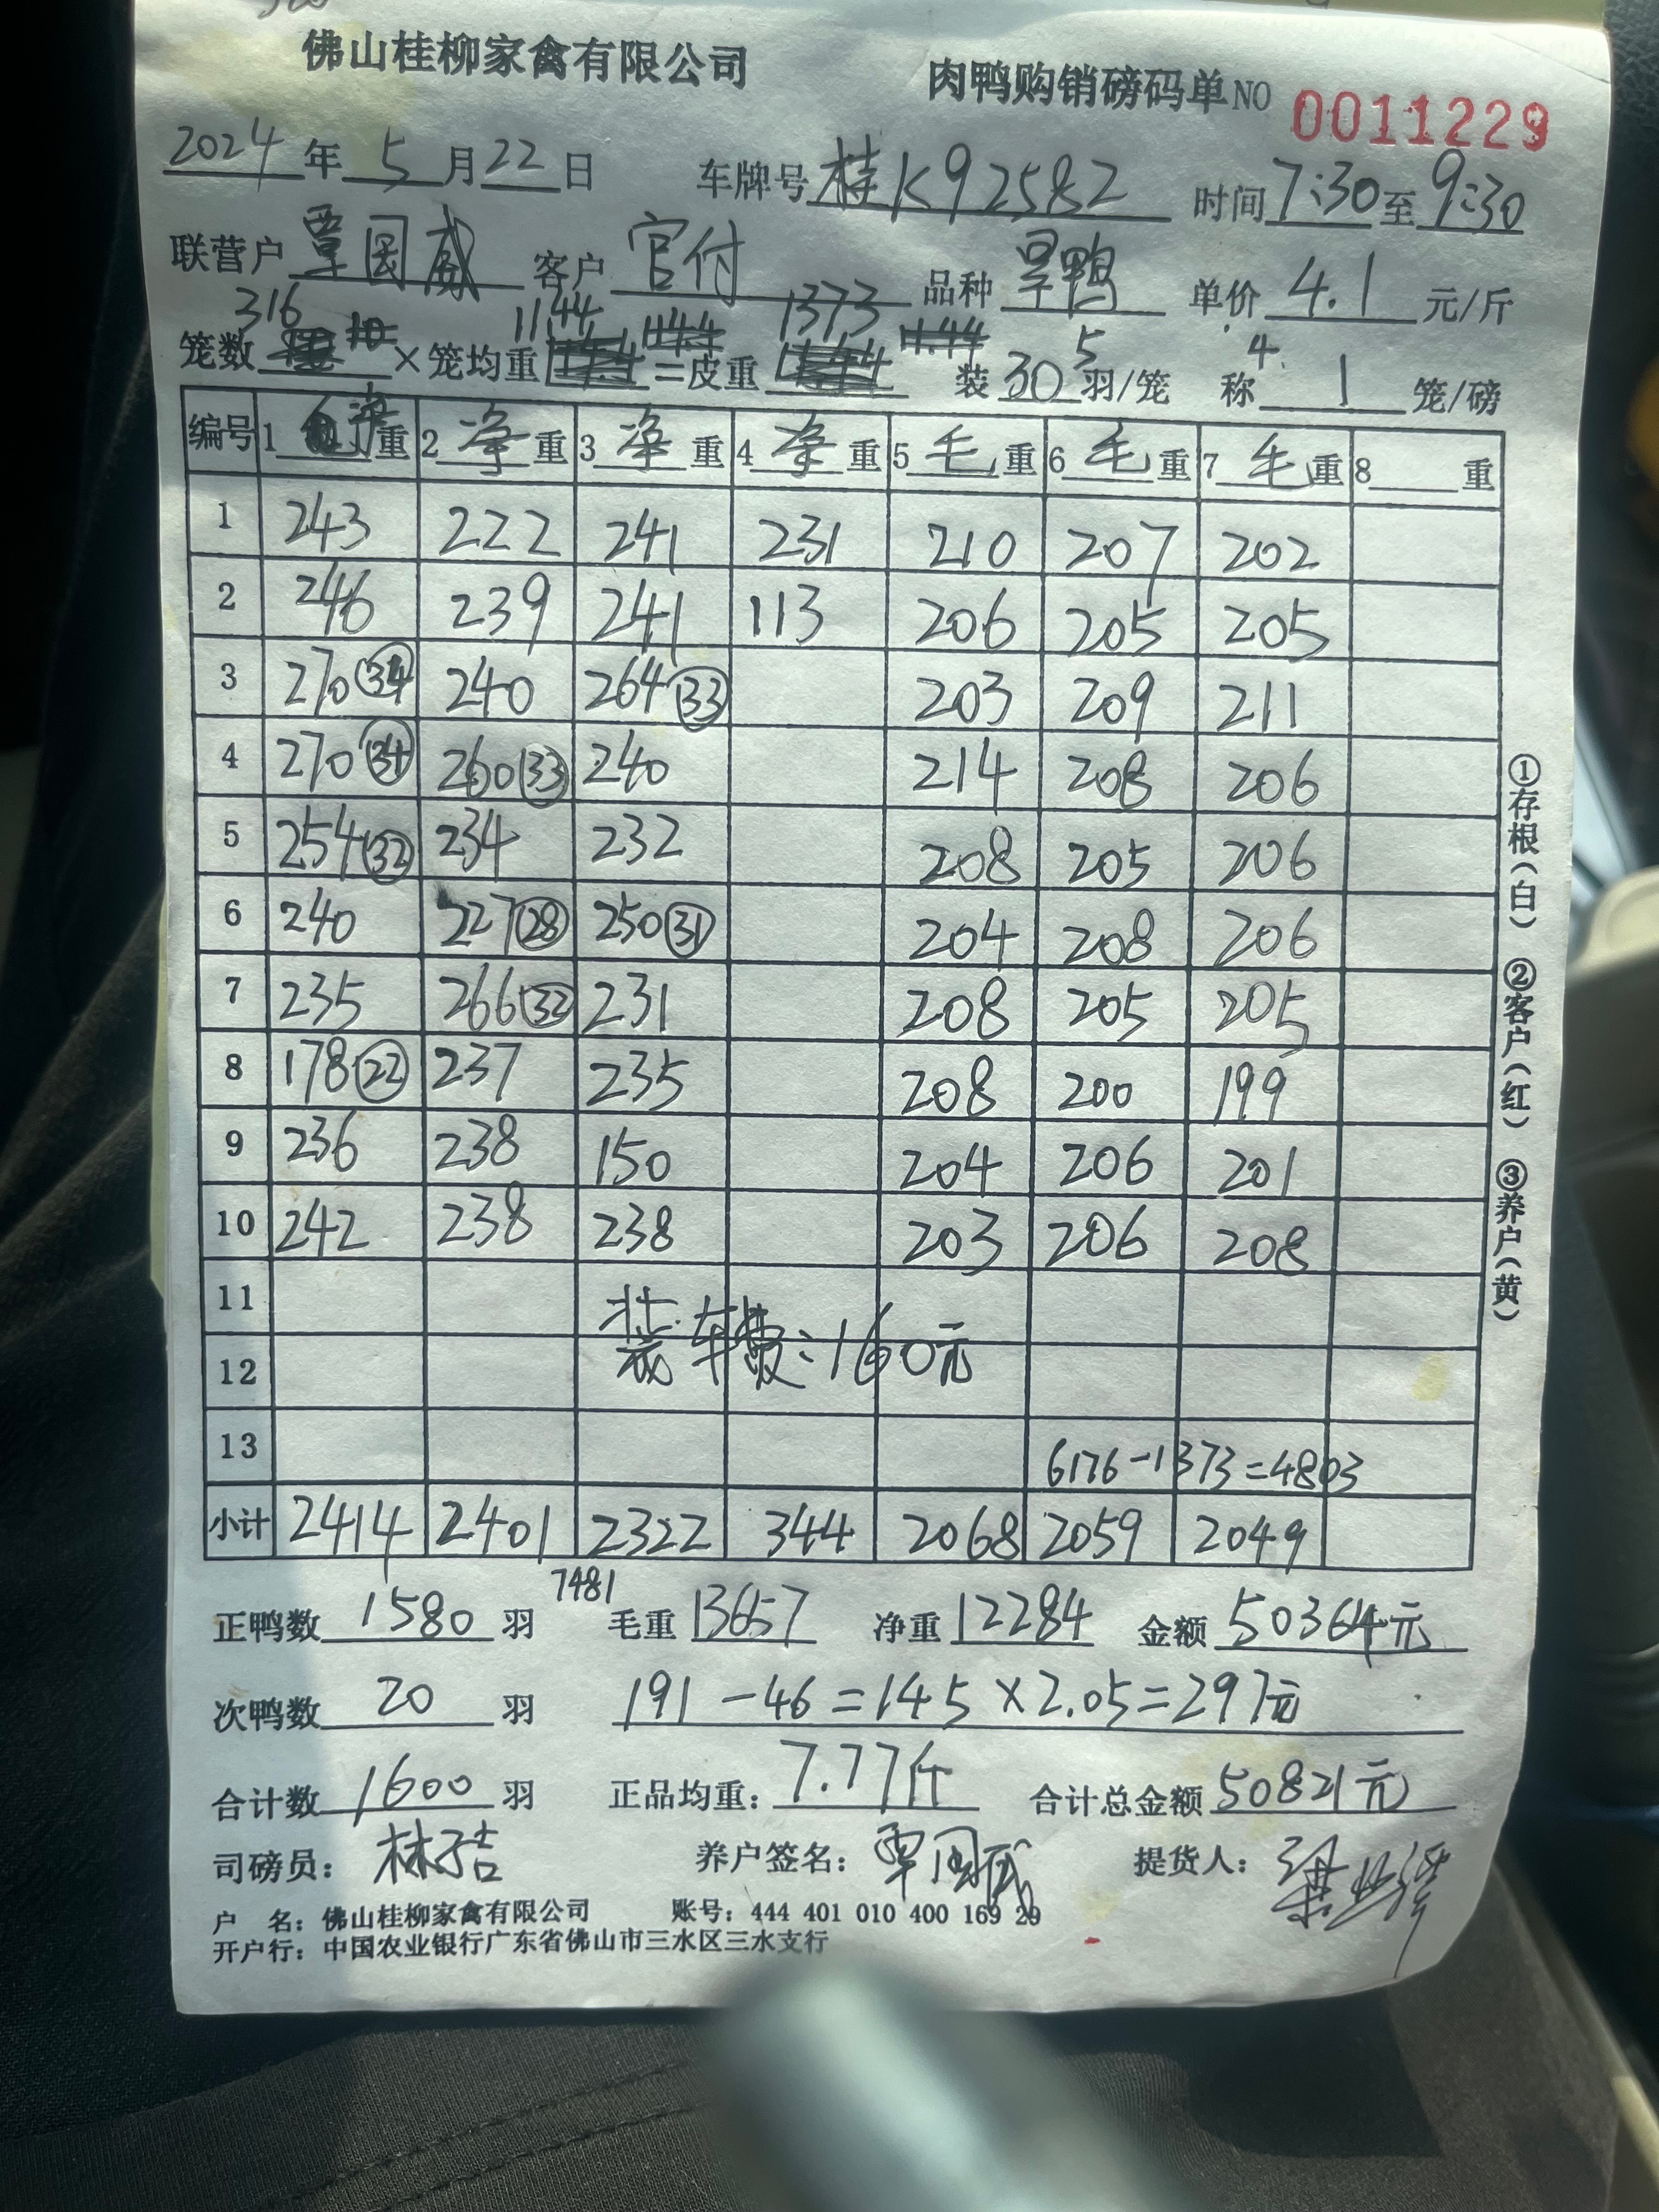 佛山桂柳家禽有限公司 肉鸭购销磅码单NO 0011229
2024年5月22日 车牌号桂K92582 时间7:30至9:30
联营户覃国威 客户官付 品种旱鸭 单价4.1元/斤
316 1144 1373 5 4
笼数 ×笼均重 =皮重 装30羽/笼 称1笼/磅
编号 1净重 2净重 3净重 4净重 5毛重 6毛重 7毛重 8重
1 243 222 241 231 210 207 202
2 246 239 241 113 206 205 205
3 270(34) 240 264(33) 203 209 211
4 270(34) 260(33) 240 214 208 206
5 254(32) 234 232 208 205 206
6 240 227(28) 250(31) 204 208 206
7 235 266(32) 231 208 205 205
8 178(22) 237 235 208 200 199
9 236 238 150 204 206 201
10 242 238 238 203 206 208
11
12 装车费:160元
13 6176-1373=4803
小计 2414 2401 2322 344 2068 2059 2049
7481
正鸭数1580羽 毛重13657 净重12284 金额50364元
次鸭数20羽 191-46=145×2.05=297元
合计数1600羽 正品均重:7.77斤 合计总金额50821元
司磅员: 养户签名:覃国威 提货人:
户 名:佛山桂柳家禽有限公司 账号:444 401 010 400 169 29
开户行:中国农业银行广东省佛山市三水区三水支行
①存根(白) ②客户(红) ③养户(黄)